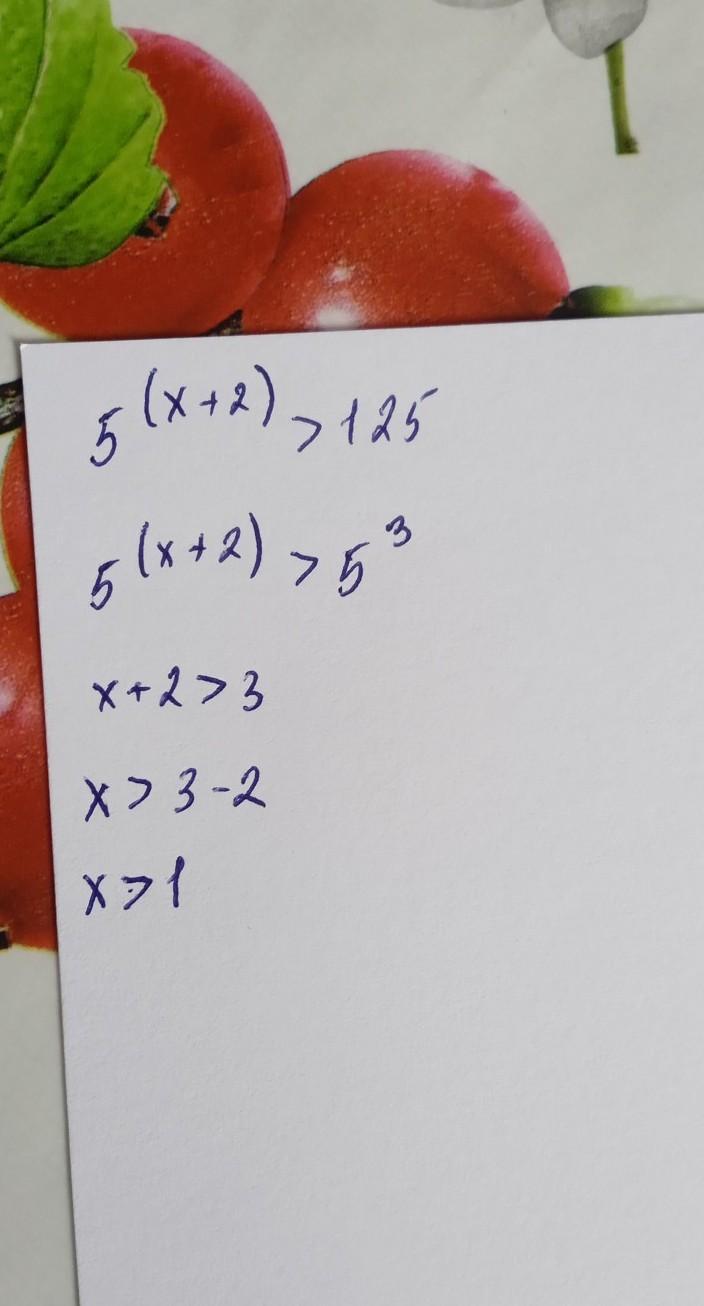 5^(x+2) > 125
5^(x+2) > 5^3
x+2>3
x>3-2
x>1